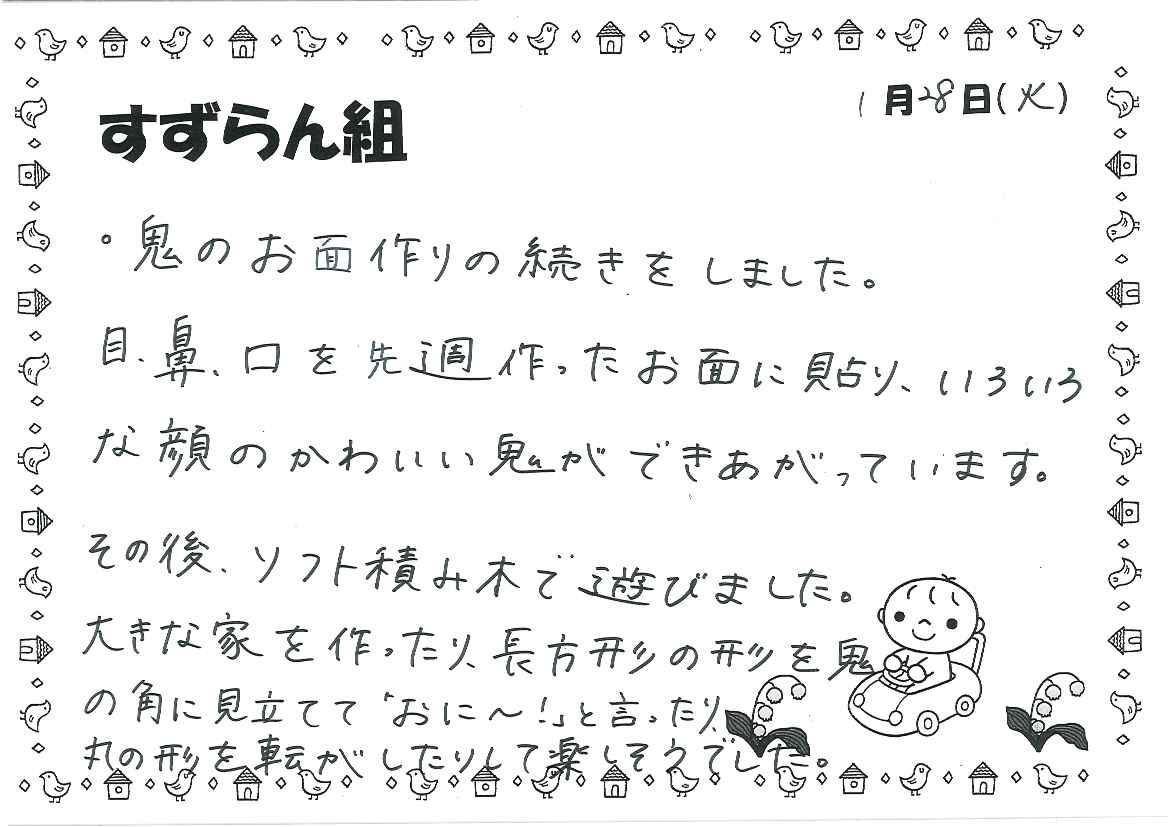 すずらん組
1月28日(火)
。鬼のお面作りの続きをしました。
目、鼻、口を先週作ったお面に貼り、いろいろ
な顔のかわいい鬼ができあがっています。
その後、ソフト積み木で遊びました。
大きな家を作ったり、長方形の形を鬼
の角に見立てて「おに〜!」と言ったり、
丸の形を転がしたりして楽しそうでした。